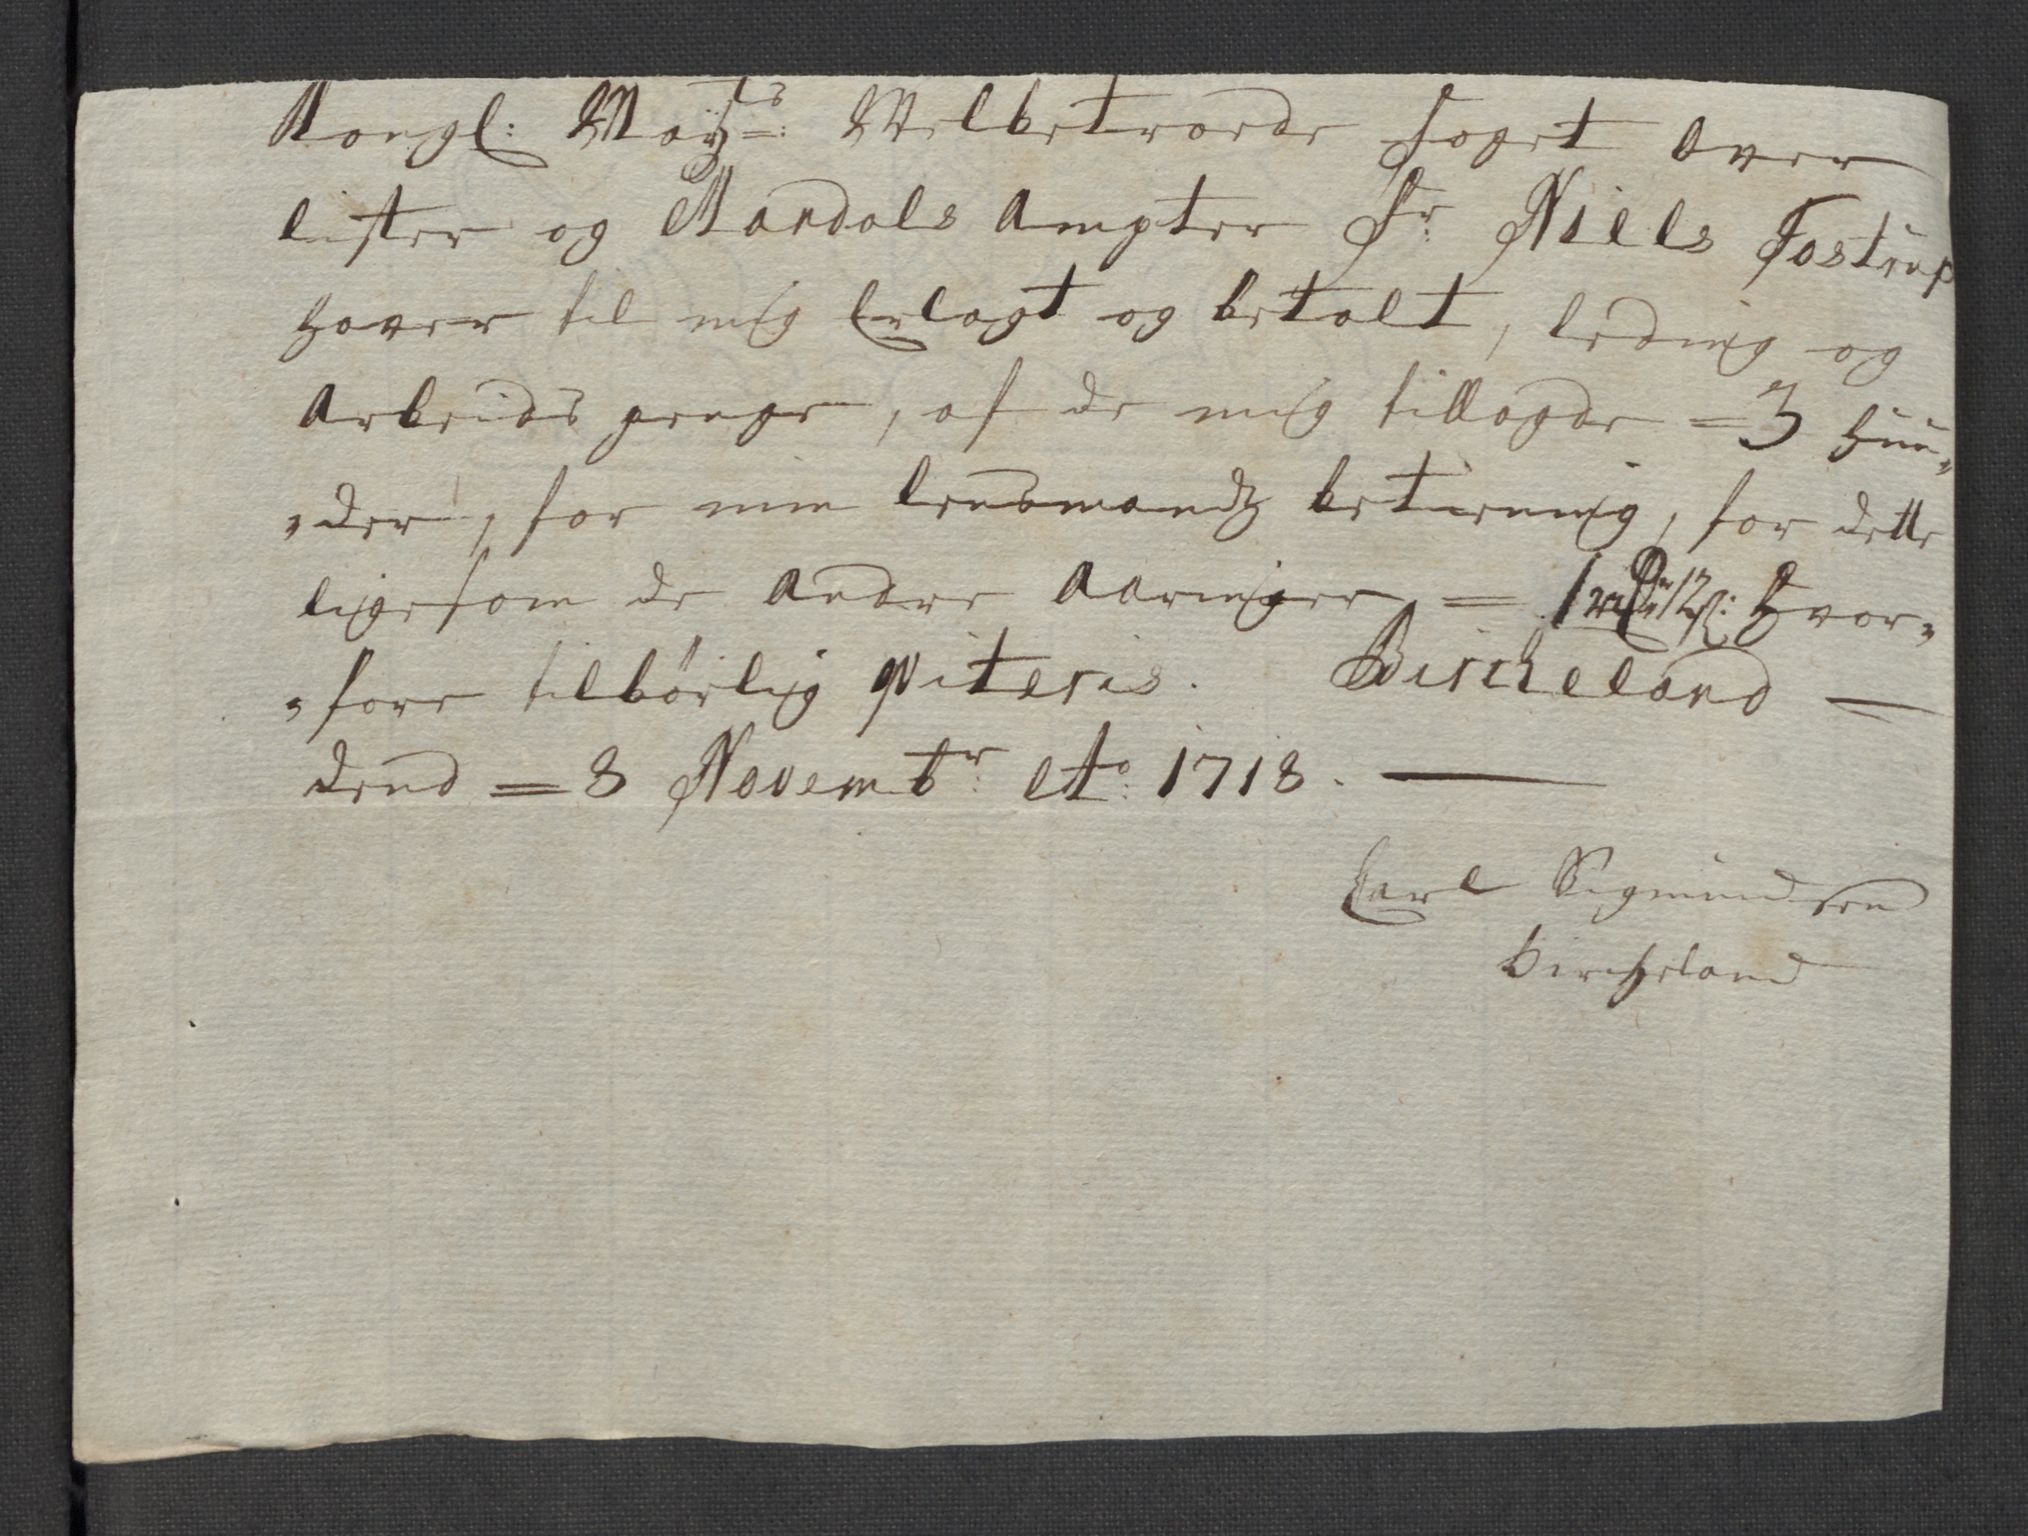 Kongl: Mayts: Welbetroede Foget over
lister og Mandals Ampter Sr: Niels Tostrup
haver til mig Erlagt og betalt, leding og
Arbeids penge, af de mig tillagde = 3 hün„
„der, for min lensmandtz betiening, for dette
ligesom de andre aaringer = 1 hvor„
„fore tilbørlig qviteris. Bircheland =
dend = 8 Novembr: Ao: 1718. —
Carl Sigmündsen
bircheland